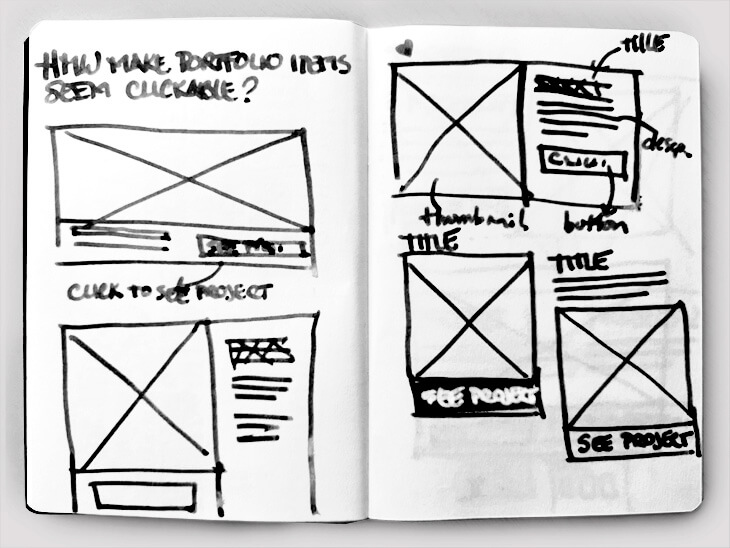 HMW MAKE PORTFOLIO ITEMS
SEEM CLICKABLE?
CLICK TO SEE PROJECT
TITLE
descr
thumbnail
button
TITLE
SEE PROJECT
TITLE
SEE PROJECT